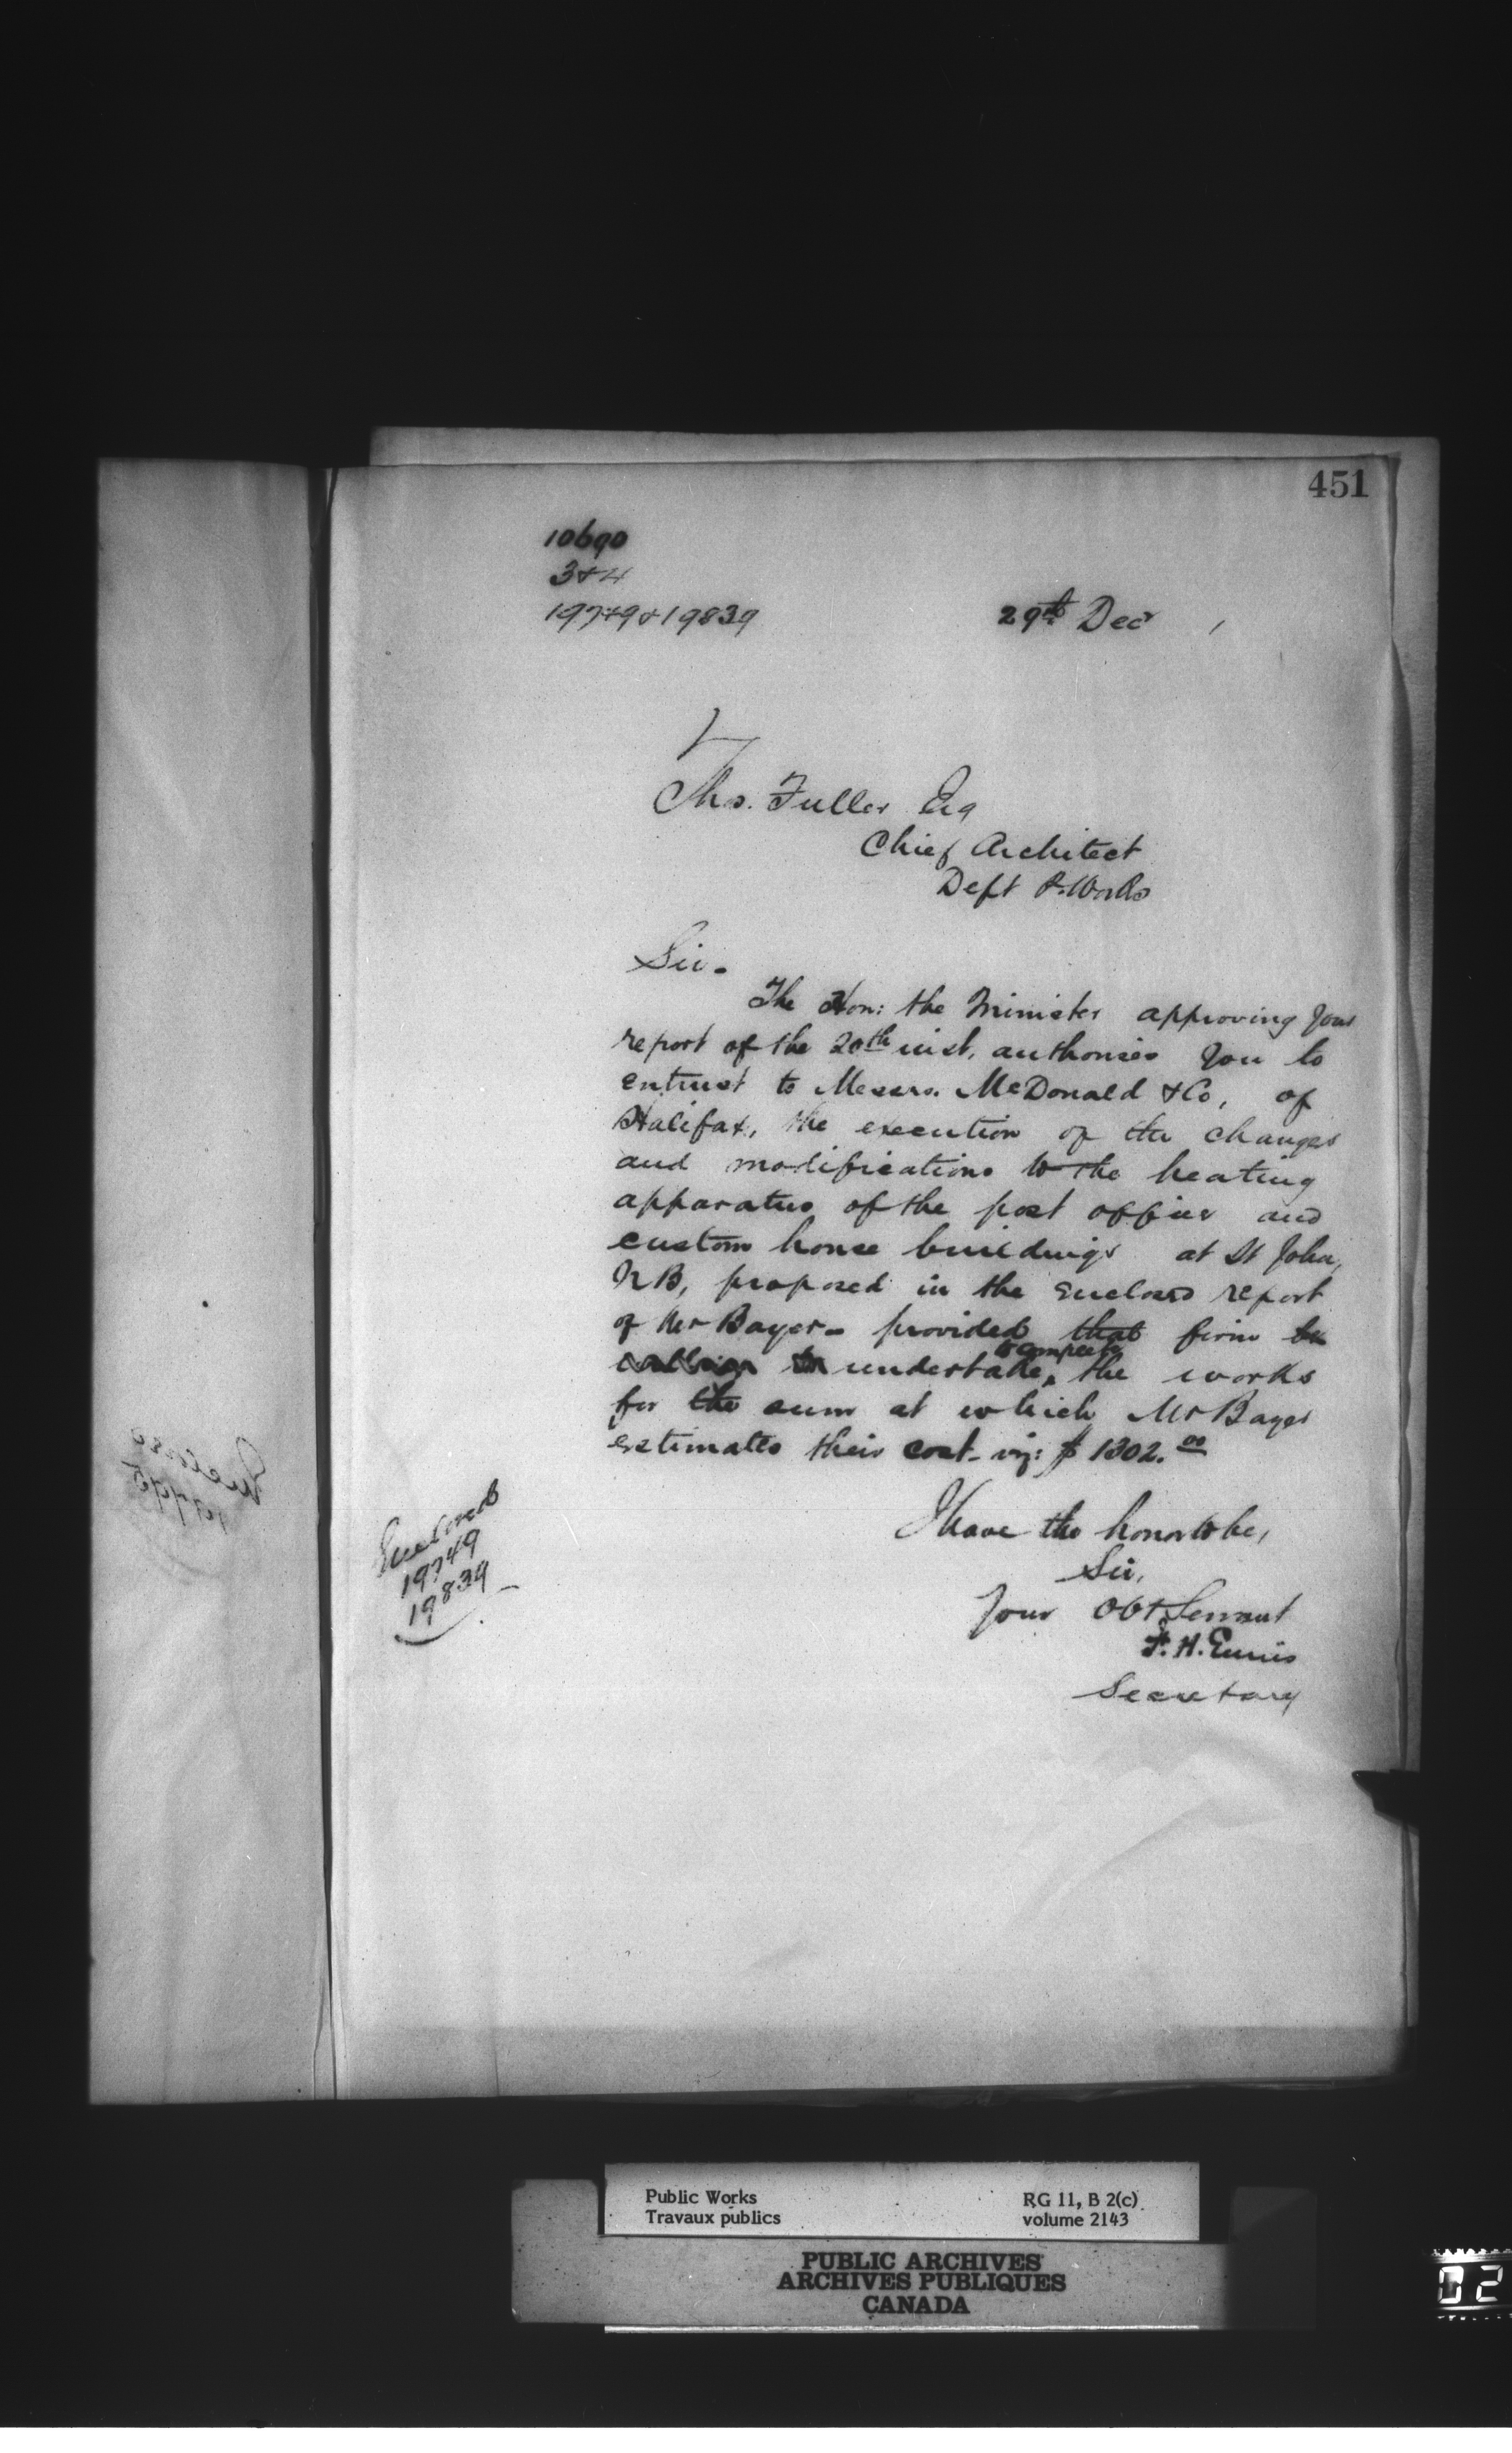 451
10690
3&4
19749 & 19839
29th Decr
Ths. Fuller Esq
Chief Architect
Dept P. Works
Sir.
The Hon: the Minister approving your
report of the 20th inst, authorises you to
entrust to Messrs. McDonald & Co, of
Halifax, the execution of the changes
and modifications to the heating
apparatus of the post office and
custom house buildings at St John,
NB, proposed in the enclosed report
of Mr Bayer - provided that firm
undertake to complete the works
for the sum at which Mr Bayer
estimates their cost - viz: $ 1302.00
I have the honor to be,
Sir,
Your Obt Servant
F. H. Ennis
Secretary
Enclosed
19749
19839
Public Works
Travaux publics
RG 11, B 2(c)
volume 2143
PUBLIC ARCHIVES
ARCHIVES PUBLIQUES
CANADA
02